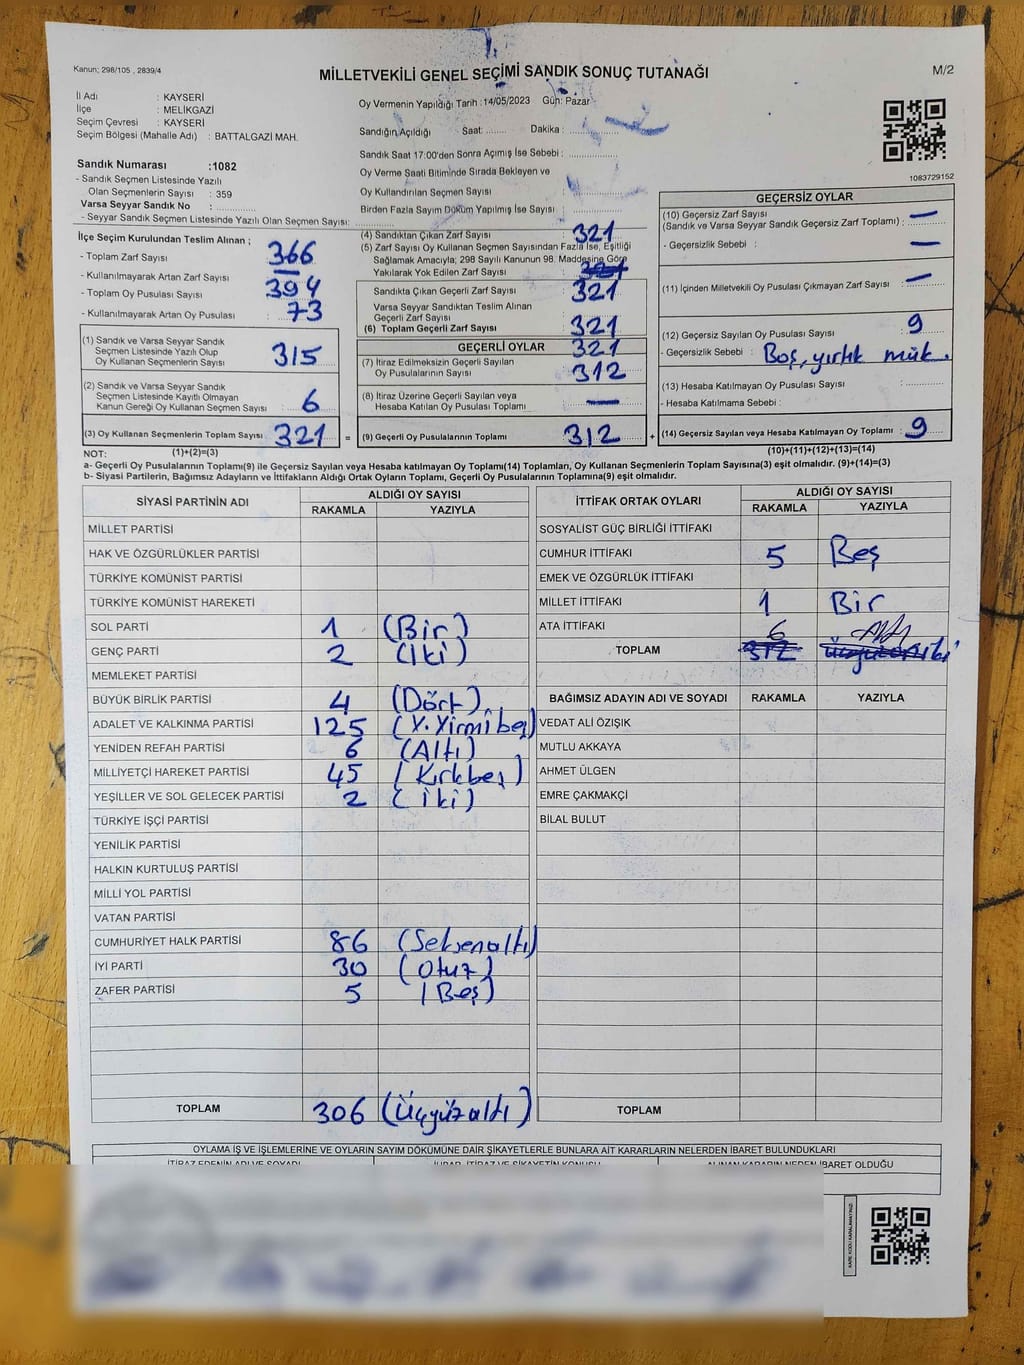 Kanun; 298/105 , 2839/4
MİLLETVEKİLİ GENEL SEÇİMİ SANDIK SONUÇ TUTANAĞI
M/2
İl Adı : KAYSERİ
İlçe : MELİKGAZİ
Seçim Çevresi : KAYSERİ
Seçim Bölgesi (Mahalle Adı) : BATTALGAZİ MAH.
Oy Vermenin Yapıldığı Tarih :14/05/2023 Gün: Pazar
Sandığın Açıldığı Saat:....... Dakika :
Sandık Saat 17:00'den Sonra Açılmış İse Sebebi :
Oy Verme Saati Bitiminde Sırada Bekleyen ve
Oy Kullandırılan Seçmen Sayısı :
Birden Fazla Sayım Döküm Yapılmış İse Sayısı :
1083729152
Sandık Numarası :1082
- Sandık Seçmen Listesinde Yazılı
Olan Seçmenlerin Sayısı : 359
Varsa Seyyar Sandık No :
- Seyyar Sandık Seçmen Listesinde Yazılı Olan Seçmen Sayısı:
İlçe Seçim Kurulundan Teslim Alınan ;
- Toplam Zarf Sayısı : 366
- Kullanılmayarak Artan Zarf Sayısı : —
- Toplam Oy Pusulası Sayısı : 394
- Kullanılmayarak Artan Oy Pusulası : 73
(1) Sandık ve Varsa Seyyar Sandık
Seçmen Listesinde Yazılı Olup
Oy Kullanan Seçmenlerin Sayısı : 315
(2) Sandık ve Varsa Seyyar Sandık
Seçmen Listesinde Kayıtlı Olmayan
Kanun Gereği Oy Kullanan Seçmen Sayısı : 6
(3) Oy Kullanan Seçmenlerin Toplam Sayısı : 321
(4) Sandıktan Çıkan Zarf Sayısı : 321
(5) Zarf Sayısı Oy Kullanan Seçmen Sayısından Fazla İse, Eşitliği
Sağlamak Amacıyla; 298 Sayılı Kanunun 98. Maddesine Göre
Yakılarak Yok Edilen Zarf Sayısı :
Sandıkta Çıkan Geçerli Zarf Sayısı : 321
Varsa Seyyar Sandıktan Teslim Alınan
Geçerli Zarf Sayısı
(6) Toplam Geçerli Zarf Sayısı : 321
GEÇERLİ OYLAR 321
(7) İtiraz Edilmeksizin Geçerli Sayılan
Oy Pusulalarının Sayısı : 312
(8) İtiraz Üzerine Geçerli Sayılan veya
Hesaba Katılan Oy Pusulası Toplamı : —
= (9) Geçerli Oy Pusulalarının Toplamı : 312
GEÇERSİZ OYLAR
(10) Geçersiz Zarf Sayısı
(Sandık ve Varsa Seyyar Sandık Geçersiz Zarf Toplamı) : —
- Geçersizlik Sebebi : —
(11) İçinden Milletvekili Oy Pusulası Çıkmayan Zarf Sayısı : —
(12) Geçersiz Sayılan Oy Pusulası Sayısı : 9
- Geçersizlik Sebebi : Boş, yırtık mük.
(13) Hesaba Katılmayan Oy Pusulası Sayısı :
- Hesaba Katılmama Sebebi :
+ (14) Geçersiz Sayılan veya Hesaba Katılmayan Oy Toplamı : 9
NOT: (1)+(2)=(3) (10)+(11)+(12)+(13)=(14)
a- Geçerli Oy Pusulalarının Toplamı(9) ile Geçersiz Sayılan veya Hesaba katılmayan Oy Toplamı(14) Toplamları, Oy Kullanan Seçmenlerin Toplam Sayısına(3) eşit olmalıdır. (9)+(14)=(3)
b- Siyasi Partilerin, Bağımsız Adayların ve İttifakların Aldığı Oyların Toplamı, Geçerli Oy Pusulalarının Toplamına(9) eşit olmalıdır.
SİYASİ PARTİNİN ADI ALDIĞI OY SAYISI
RAKAMLA YAZIYLA
MİLLET PARTİSİ
HAK VE ÖZGÜRLÜKLER PARTİSİ
TÜRKİYE KOMÜNİST PARTİSİ
TÜRKİYE KOMÜNİST HAREKETİ
SOL PARTİ 1 (Bir)
GENÇ PARTİ 2 (İki)
MEMLEKET PARTİSİ
BÜYÜK BİRLİK PARTİSİ 4 (Dört)
ADALET VE KALKINMA PARTİSİ 125 (Y. Yirmibeş)
YENİDEN REFAH PARTİSİ 6 (Altı)
MİLLİYETÇİ HAREKET PARTİSİ 45 (Kırkbeş)
YEŞİLLER VE SOL GELECEK PARTİSİ 2 (İki)
TÜRKİYE İŞÇİ PARTİSİ
YENİLİK PARTİSİ
HALKIN KURTULUŞ PARTİSİ
MİLLİ YOL PARTİSİ
VATAN PARTİSİ
CUMHURİYET HALK PARTİSİ 86 (Seksenaltı)
İYİ PARTİ 30 (Otuz)
ZAFER PARTİSİ 5 (Beş)
TOPLAM 306 (Üçyüzaltı)
İTTİFAK ORTAK OYLARI ALDIĞI OY SAYISI
RAKAMLA YAZIYLA
SOSYALİST GÜÇ BİRLİĞİ İTTİFAKI
CUMHUR İTTİFAKI 5 Beş
EMEK VE ÖZGÜRLÜK İTTİFAKI
MİLLET İTTİFAKI 1 Bir
ATA İTTİFAKI
6 Altı
TOPLAM 312
BAĞIMSIZ ADAYIN ADI VE SOYADI RAKAMLA YAZIYLA
VEDAT ALİ ÖZIŞIK
MUTLU AKKAYA
AHMET ÜLGEN
EMRE ÇAKMAKÇİ
BİLAL BULUT
TOPLAM
OYLAMA İŞ VE İŞLEMLERİNE VE OYLARIN SAYIM DÖKÜMÜNE DAİR ŞİKAYETLERLE BUNLARA AİT KARARLARIN NELERDEN İBARET BULUNDUKLARI
İTİRAZ EDENİN ADI VE SOYADI
ALINAN KARARIN NEDEN İBARET OLDUĞU